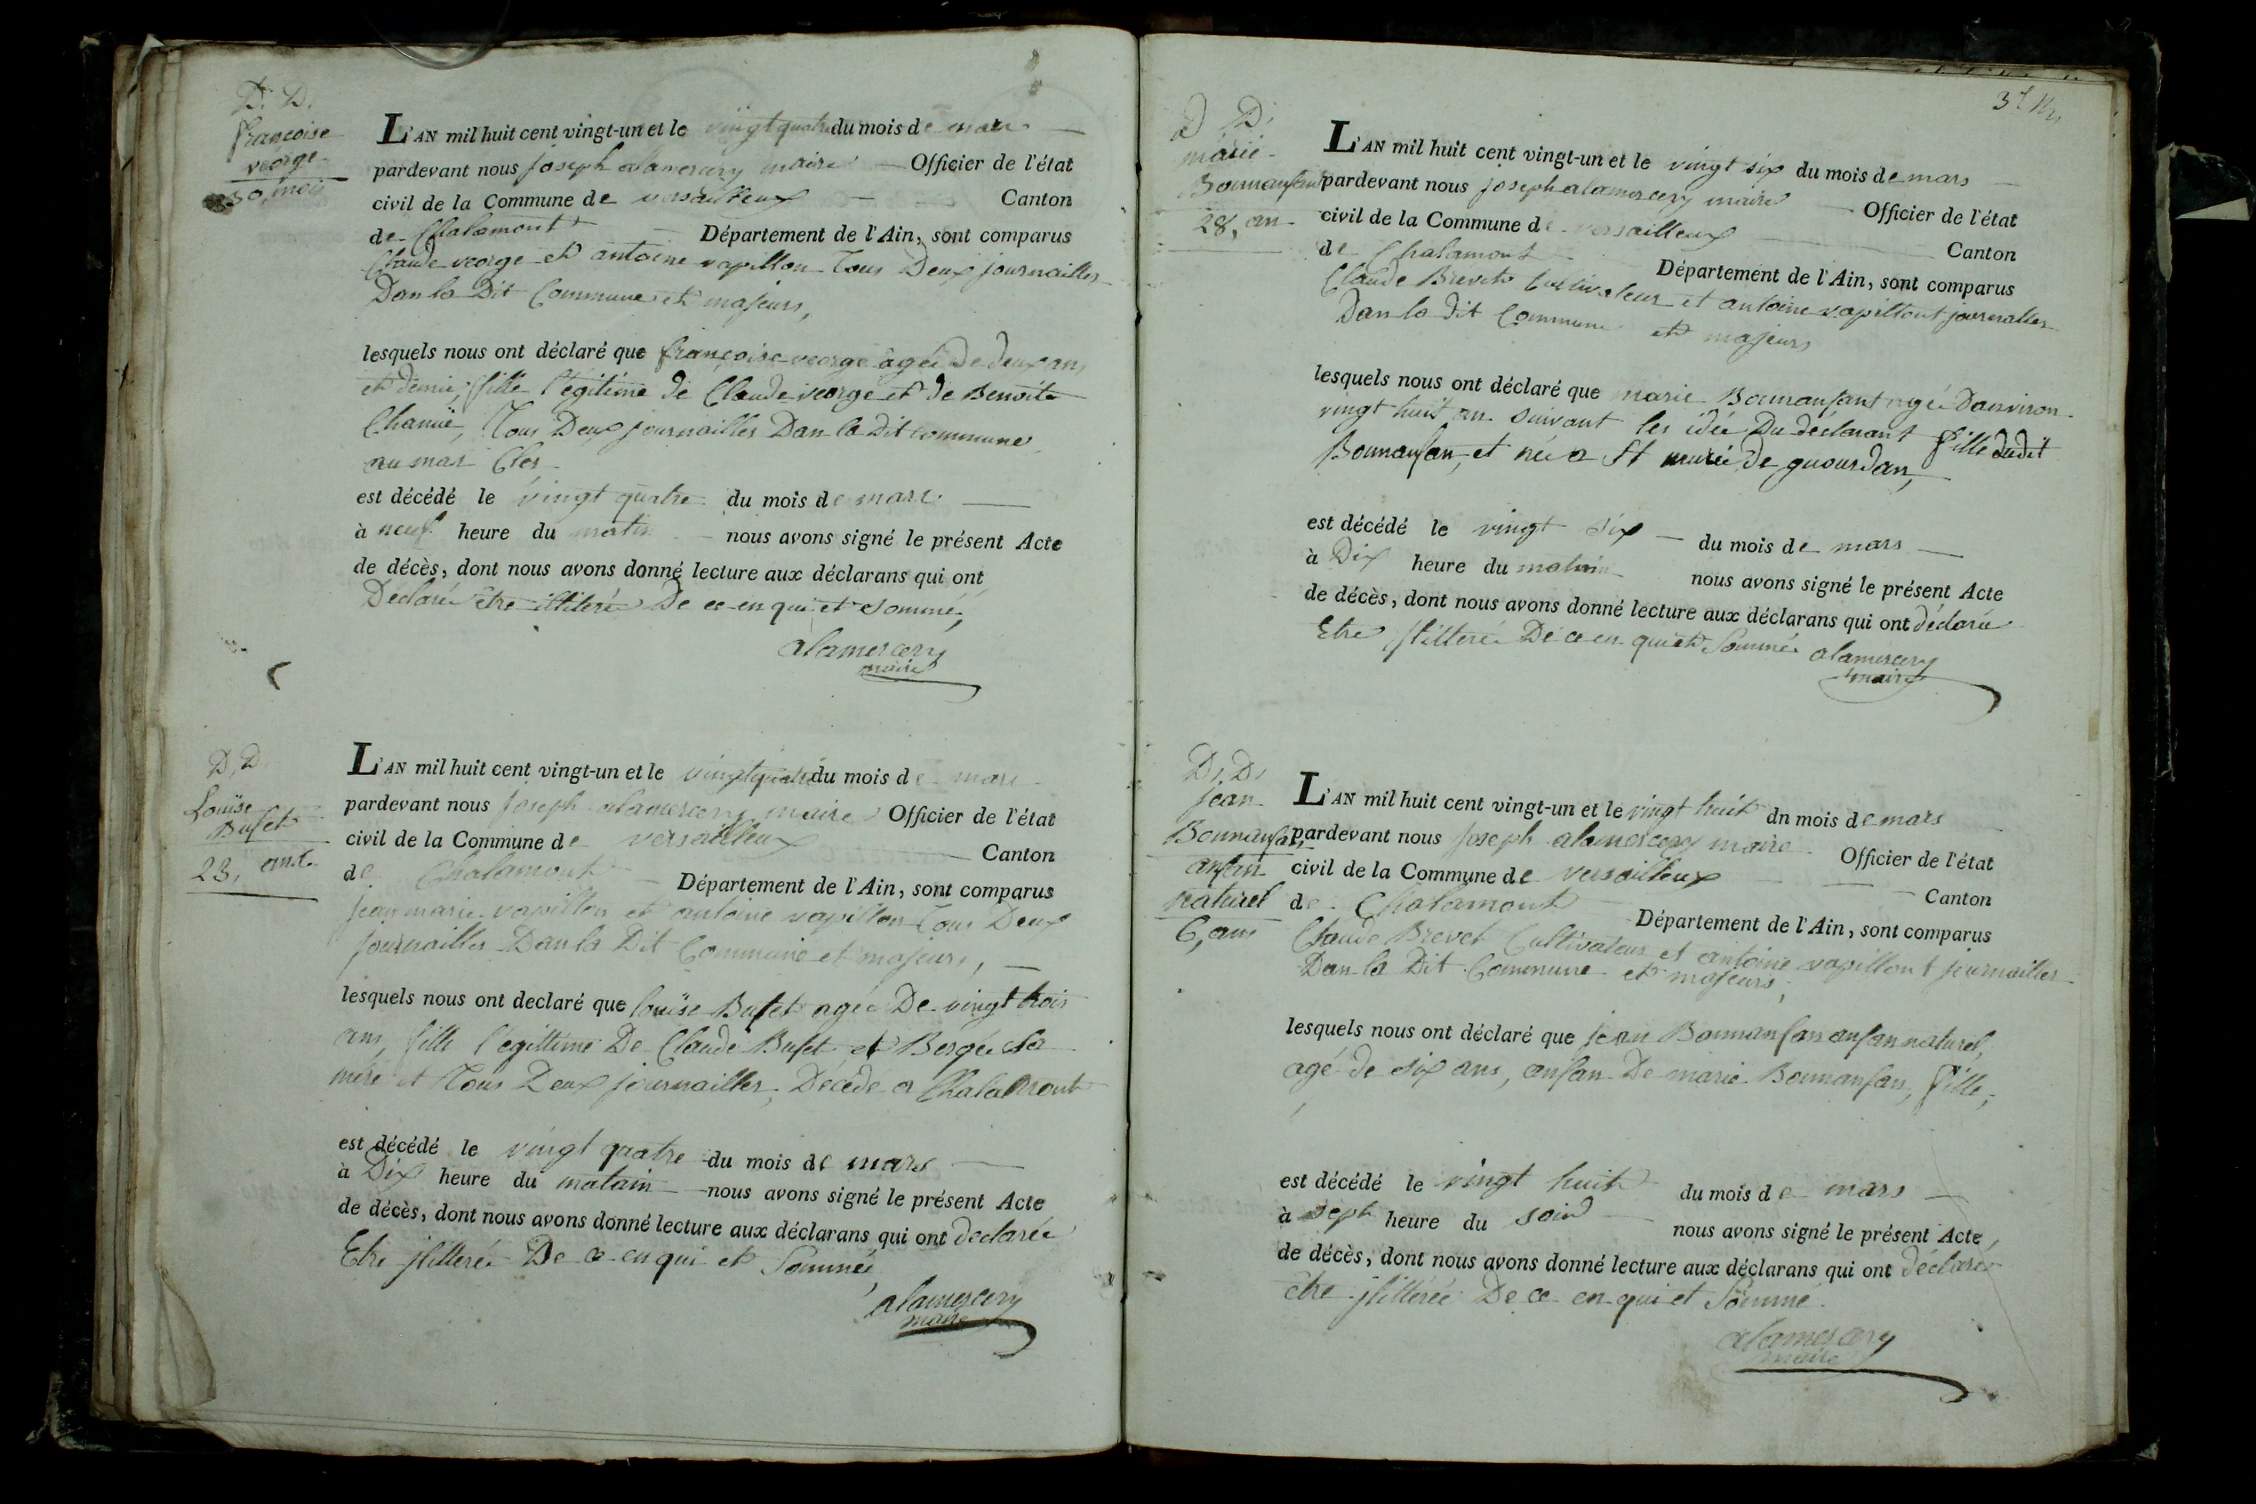 D. D.
françoise
veorge
30, mois
L'AN mil huit cent vingt-un et le vingt quatre du mois de mars
pardevant nous joseph alamercery maire Officier de l'état
civil de la Commune de versailleux Canton
de Chalamont Département de l'Ain, sont comparus
Claude veorge et antoine vapillon Tous Deux journailler
Dan la Dit Commune et majeurs,
lesquels nous ont déclaré que françoise veorge agée de deux ans
et demie, fille légitime de Claude veorge et de Benoite
Chanue, Tous Deux journailler Dan la Dit commune
au mas
est décédé le vingt quatre du mois de mars
à neuf heure du matin nous avons signé le présent Acte
de décès, dont nous avons donné lecture aux déclarans qui ont
Declaré etre illiteré De ce en qui et sommé,
alamercery
maire
D, D.
Louïse
Bufet
23, ans
L'AN mil huit cent vingt-un et le vingt quatre du mois de mars
pardevant nous joseph alamercery maire Officier de l'état
civil de la Commune de versailleux Canton
de Chalamont Département de l'Ain, sont comparus
jean marie vapillon et antoine vapillon Tous Deux
journailler Dan la Dit Commune et majeurs,
lesquels nous ont declaré que louïse Bufet agée De vingt trois
ans, fille légittime De Claude Bufet et Bergée sa
mére et Tous Deux journailler, Décédé a Chalamont
est décédé le vingt quatre du mois de mars
à Dix heure du matain nous avons signé le présent Acte
de décès, dont nous avons donné lecture aux déclarans qui ont declarée
Etre jlliteré De ce en qui et Sommée
alamercery
maire
D. D.
marie
Bonnanfant
28, an
L'AN mil huit cent vingt-un et le vingt six du mois de mars
pardevant nous joseph alamercery maire Officier de l'état
civil de la Commune de versailleux Canton
de Chalamont Département de l'Ain, sont comparus
Claude Brevet Cultivateur et antoine vapillont journailler
Dan la dit Commune et majeurs
lesquels nous ont déclaré que marie Bonnanfant agée Danviron
vingt huit an suivant les idée Du déclarant fille dudit
Bonnanfan, et née a St de guourdan,
est décédé le vingt six du mois de mars
à Dix heure du matain nous avons signé le présent Acte
de décès, dont nous avons donné lecture aux déclarans qui ont déclarée
Etre jlliteré De ce en qui et Sommé
alamercery
maire
D, D,
jean
Bonnanfan
anfan
naturel
6, ans
L'AN mil huit cent vingt-un et le vingt huit dn mois de mars
pardevant nous joseph alamercery maire Officier de l'état
civil de la Commune de versailleux Canton
de Chalamont Département de l'Ain, sont comparus
Claude Brevet Cultivateur et antoine vapillont journailler
Dan la Dit Commune et majeurs,
lesquels nous ont déclaré que jean Bonnanfan anfan naturel,
agé de six ans, anfan De marie Bonnanfan, fille,
est décédé le vingt huit du mois de mars
à seph heure du soird nous avons signé le présent Acte,
de décès, dont nous avons donné lecture aux déclarans qui ont déclaré
etre jllitérée De ce en qui et Sommé
alamercery
maire